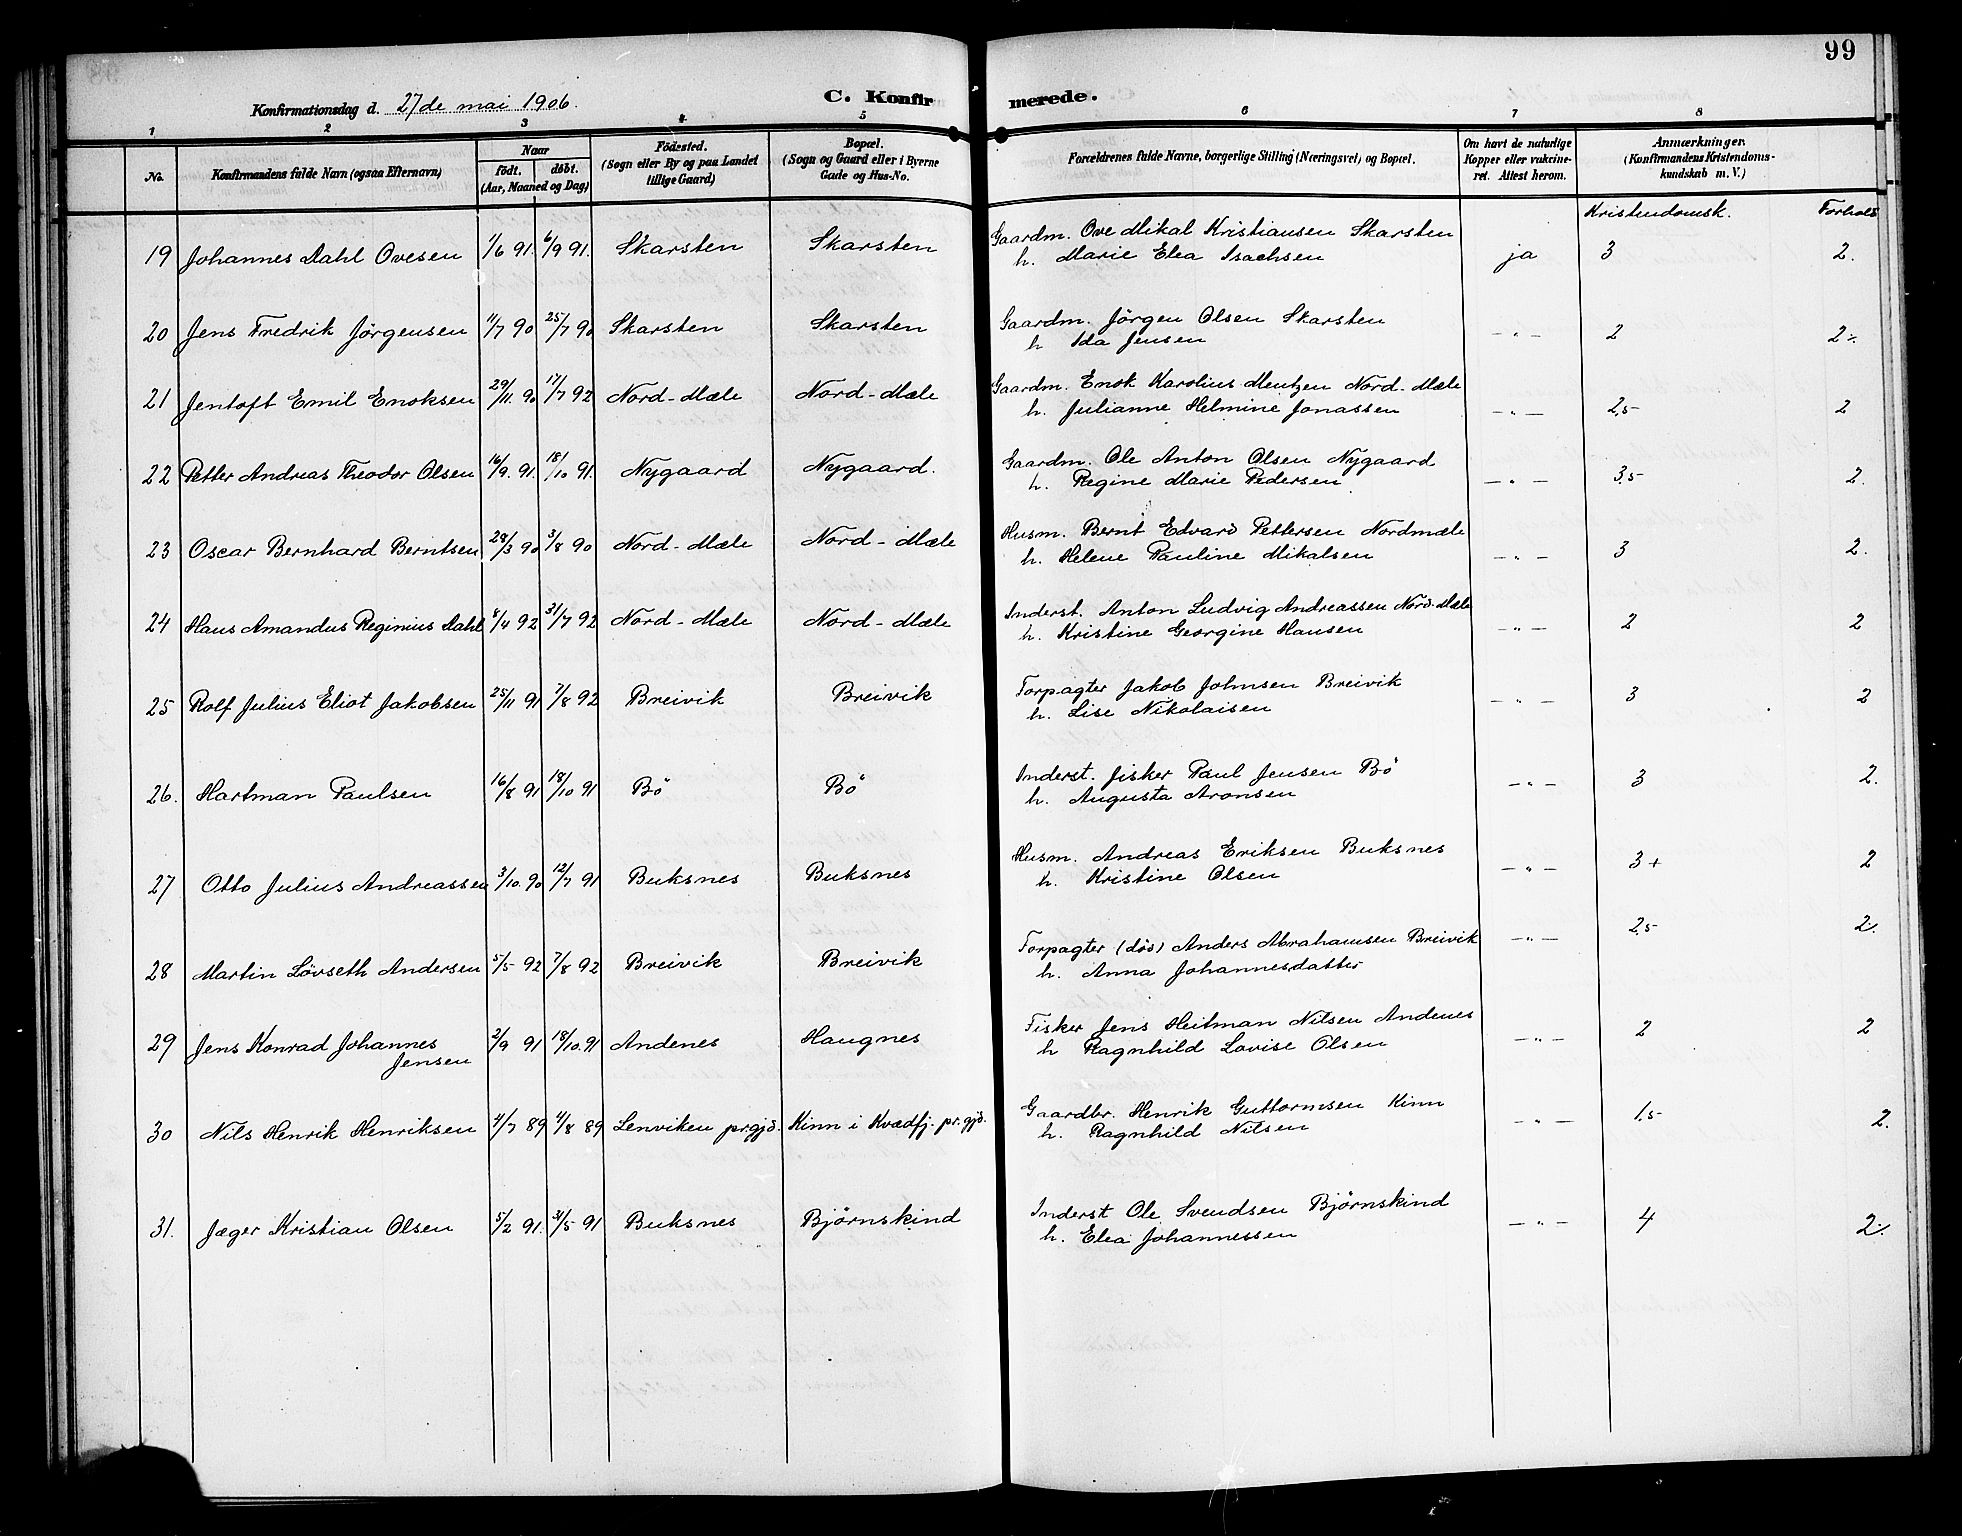 99
Konfirmationsdag d. 27de mai 1906.
C. Konfirmerede.
1 2 3 4 5 6 7 8
No.
Konfirmandens fulde Navn (ogsaa Efternavn)
Naar
født. døbt.
(Aar, Maaned og Dag)
Födested.
(Sogn eller By og paa Landet
tillige Gaard)
Bopæl.
(Sogn og Gaard eller i Byerne
Gade og Hus-No.
Forældrenes fulde Navne, borgerlige Stilling (Næringsvei) og Bopæl.
Om havt de naturlige
Kopper eller vakcine-
ret. Attest herom.
Anmærkninger.
(Konfirmandens Kristendoms-
kundskab m. V.)
Kristendomsk. Forhold
19 Johannes Dahl Ovesen 1/6 91. 6/9 91. Skarsten Skarsten Gaardm. Ove Mikal Kristiansen Skarsten
h. Marie Elea Isachsen ja 3 2.
20 Jens Fredrik Jørgensen 11/7 90 25/7 90 Skarsten Skarsten Gaardm. Jörgen Olsen Skarsten
h Ida Jensen -"- 2 2÷
21 Jentoft Emil Enoksen 29/11 90 17/7 92 Nord-Mæle Nord-Mæle Gaardm. Enok Karolius Mentzen Nord-Mæle
h. Julianne Helmine Jonassen -"- 2,5- 2
22 Petter Andreas Theodor Olsen 16/9. 91. 18/10 91. Nygaard Nygaard. Gaardm. Ole Anton Olsen Nygaard
h. Regine Marie Pedersen -"- 3,5- 2.
23 Oscar Bernhard Berntsen 28/3 90 3/8 90 Nord-Mæle Nord-Mæle Husm. Bernt Edvard Pettersen Nordmæle
h. Helene Pauline Mikalsen -"- 3 2.
24 Hans Amandus Reginius Dahl 8/4 92 31/7 92 Nord-Mæle Nord-Mæle Inderst. Anton Ludvig Andreassen Nord-Mæle
h. Kristine Georgine Hansen -"- 2 2
25 Rolf Julius Eliot Jakobsen 25/11 91 7/8 92 Breivik Breivik Forpagter Jakob Johnsen Breivik
h. Lise Nikolaisen -"- 3 2
26. Hartman Paulsen 16/8 91 18/10 91 Bö Bö Inderst. fisker Paul Jensen Bö
h. Augusta Aronsen -"- 3 2.
27 Otto Julius Andreassen 3/10. 90 12/7 91 Buksnes Buksnes Husm. Andreas Eriksen Buksnes
h. Kristine Olsen -"- 3+ 2
28 Martin Lövseth Andersen 5/5 92 7/8 92 Breivik Breivik Forpagter (död) Anders Abrahamsen Breivik
h. Anna Johannesdatter -"- 2,5- 2.
29 Jens Konrad Johannes
Jensen 2/9 91 18/10. 91 Andenes Haugnes Fisker Jens Heitman Nilsen Andenes
h Ragnhild Lovise Olsen -"- 2 2
30 Nils Henrik Henriksen 4/7 89 4/8 89 Lenviken pr.gjd. Kinn i Kvædfj. pr.gjd. Gaardbr. Henrik Guttormsen Kinn
h. Ragnhild Nilsen -"- 1,5- 2.
31. Jæger Kristian Olsen 5/2 91. 31/5 91 Buksnes Bjørnskind Inderst Ole Svendsen Bjørnskind
h. Elea Johannessen -"- 4 2÷